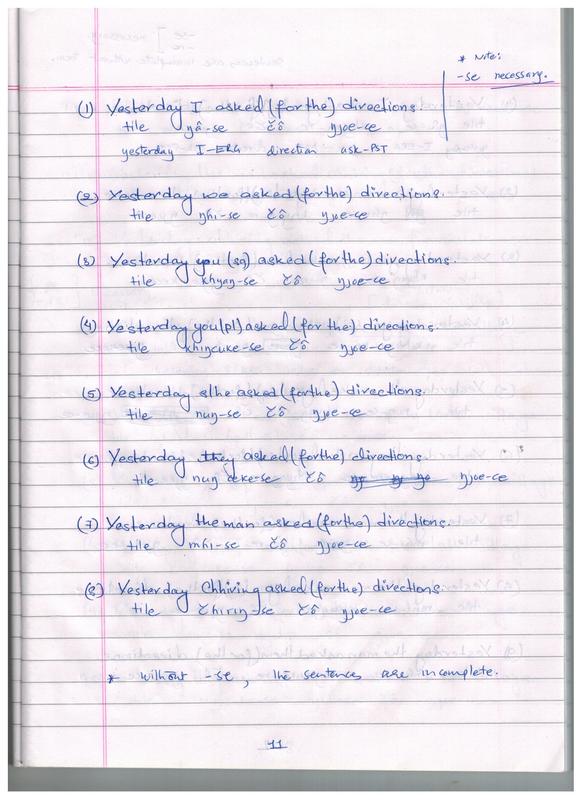 * Note:
-se necessary.
(1) Yesterday I asked (for the) directions.
tile ŋâ-se čô ŋjoe-ce
yesterday I-ERG direction ask-PST
(2) Yesterday we asked (for the) directions.
tile ŋhi-se čô ŋjoe-ce
(3) Yesterday you (sg) asked (for the) directions.
tile khyaŋ-se čô ŋjoe-ce
(4) Yesterday you (pl) asked (for the) directions.
tile khiŋcuke-se čô ŋjoe-ce
(5) Yesterday s/he asked (for the) directions.
tile nuŋ-se čô ŋjoe-ce
(6) Yesterday they asked (for the) directions
tile nuŋ cuke-se čô ŋjoe-ce
(7) Yesterday the man asked (for the) directions.
tile mhi-se čô ŋjoe-ce
(8) Yesterday Chhiring asked (for the) directions.
tile čhiriŋ-se čô ŋjoe-ce
* without -se, the sentences are incomplete.
41